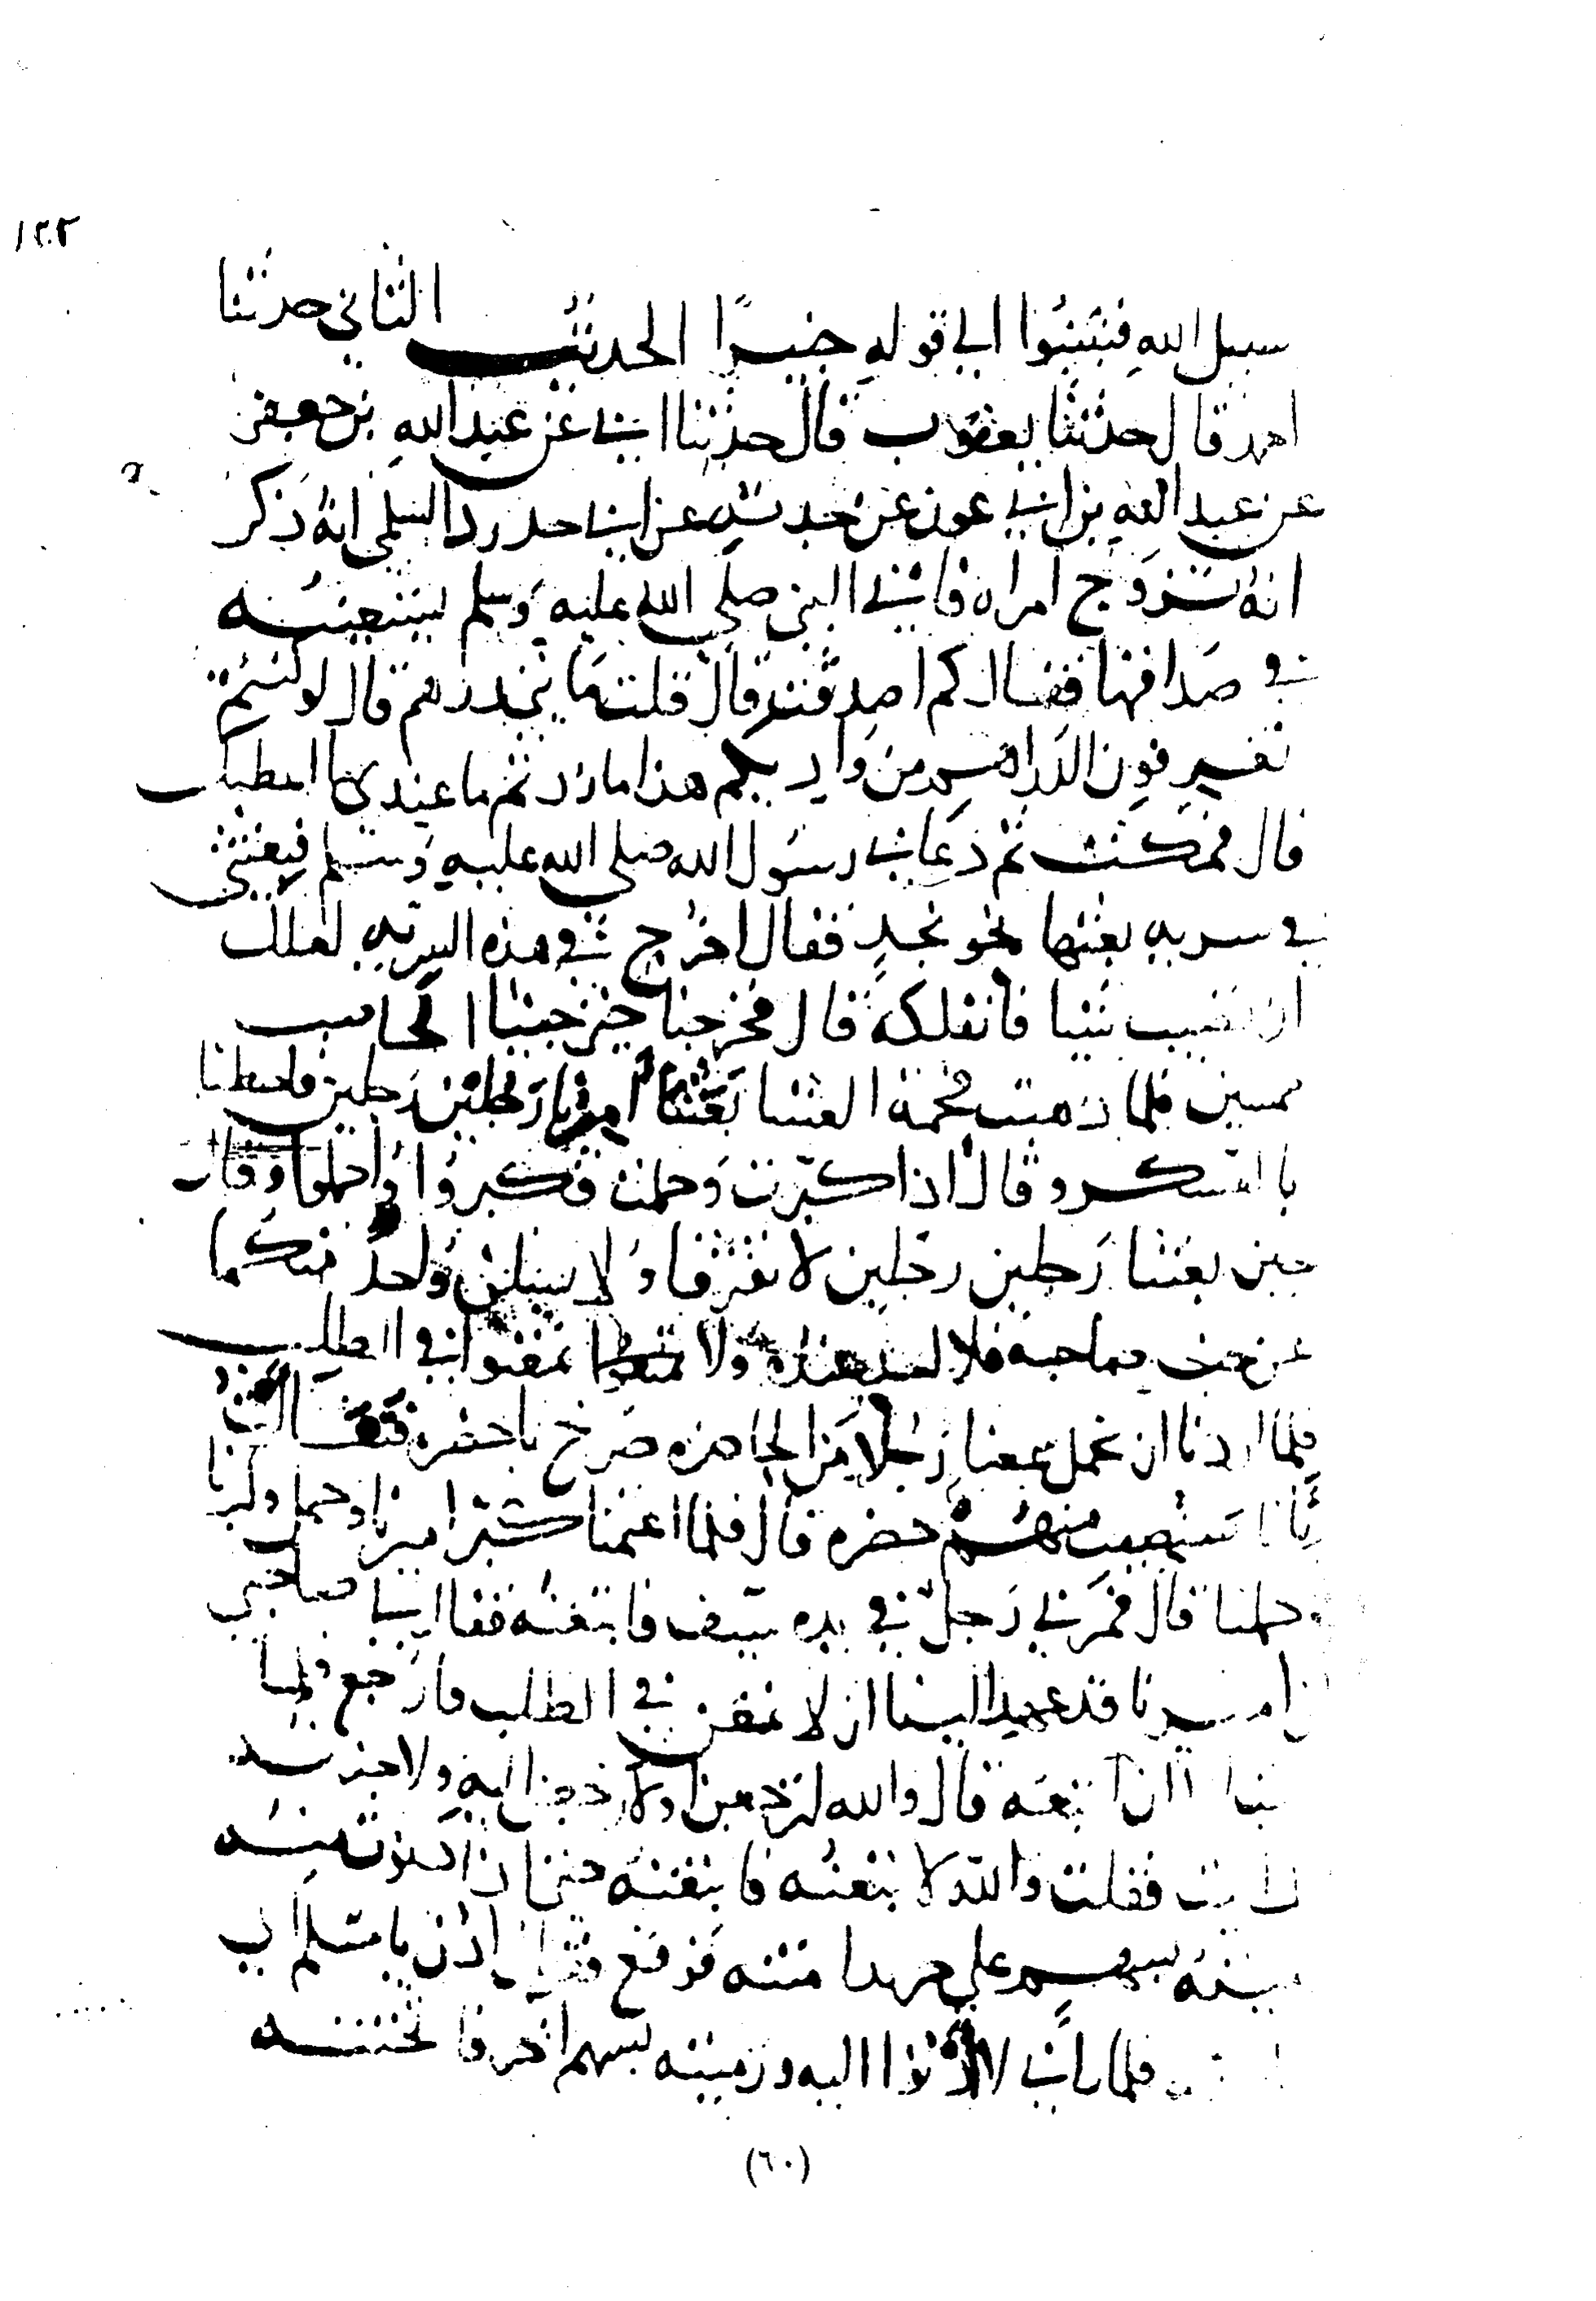 ١٢٢
سبيل الله فتبينوا الى قوله خبيرا الحديث الثاني حدثنا
احمد قال حدثنا يعقوب قال حدثنا ابي عن عبد الله بن جعفر
عن عبد الله بن ابي عون عن جدته عن ابي حدرد السلمي انه ذكر
انه تزوج امراة فاتي النبي صلى الله عليه وسلم ليستعينه
في صداقها فقال كم اصدقت قال قلت مايتي درهم قال لو كنتم
تغرفون الدراهم من واديكم هذا ما زدتم ما عندي ما اعطيك
قال فمكثت ثم دعاني رسول الله صلى الله عليه وسلم فبعثني
في سرية بعثها نحو نجد فقال اخرج في هذه السرية لعلك
ان تصيب شيا فانفلكه قال فخرجنا حتى جينا الحاضر
ممسين فلما ذهبت فحمة العشا بعثنا اميرنا رجلين رجلين فاحطنا
بالعسكر وقال اذا كبرت وحملت فكبروا واحملوا وقال
حين بعثنا رجلين رجلين لا تفترقا ولا يسلن واحد منكما
عن صاحبه فلا عنده ولا تمعنوا في الطلب
فلما اردنا ان نحمل سمعنا رجلا من الحاضره صرخ يا خضره فتفالت
بانا سنصيب منهم خضره قال فلما اعتمنا كبر اميرنا وحمل وكبرنا
وحملنا قال فمر بي رجل في يده سيف فاتبعته فقال لي صاحبي
ان اميرنا قد عهد الينا ان لا نمعن في الطلب فارجع فلما
الا ان اتبعه قال والله لترجعن او لارجعن اليه ولاخبرنه
انك ابيت فقلت والله لاتبعنه فاتبعته حتى اذا دنوت منه
رميته بسهم على متنه فوقع فقال ادن يا مسلم الى
فلما راني لا ادنوا اليه ورميته بسهم اخر فاثخنته
(٦٠)